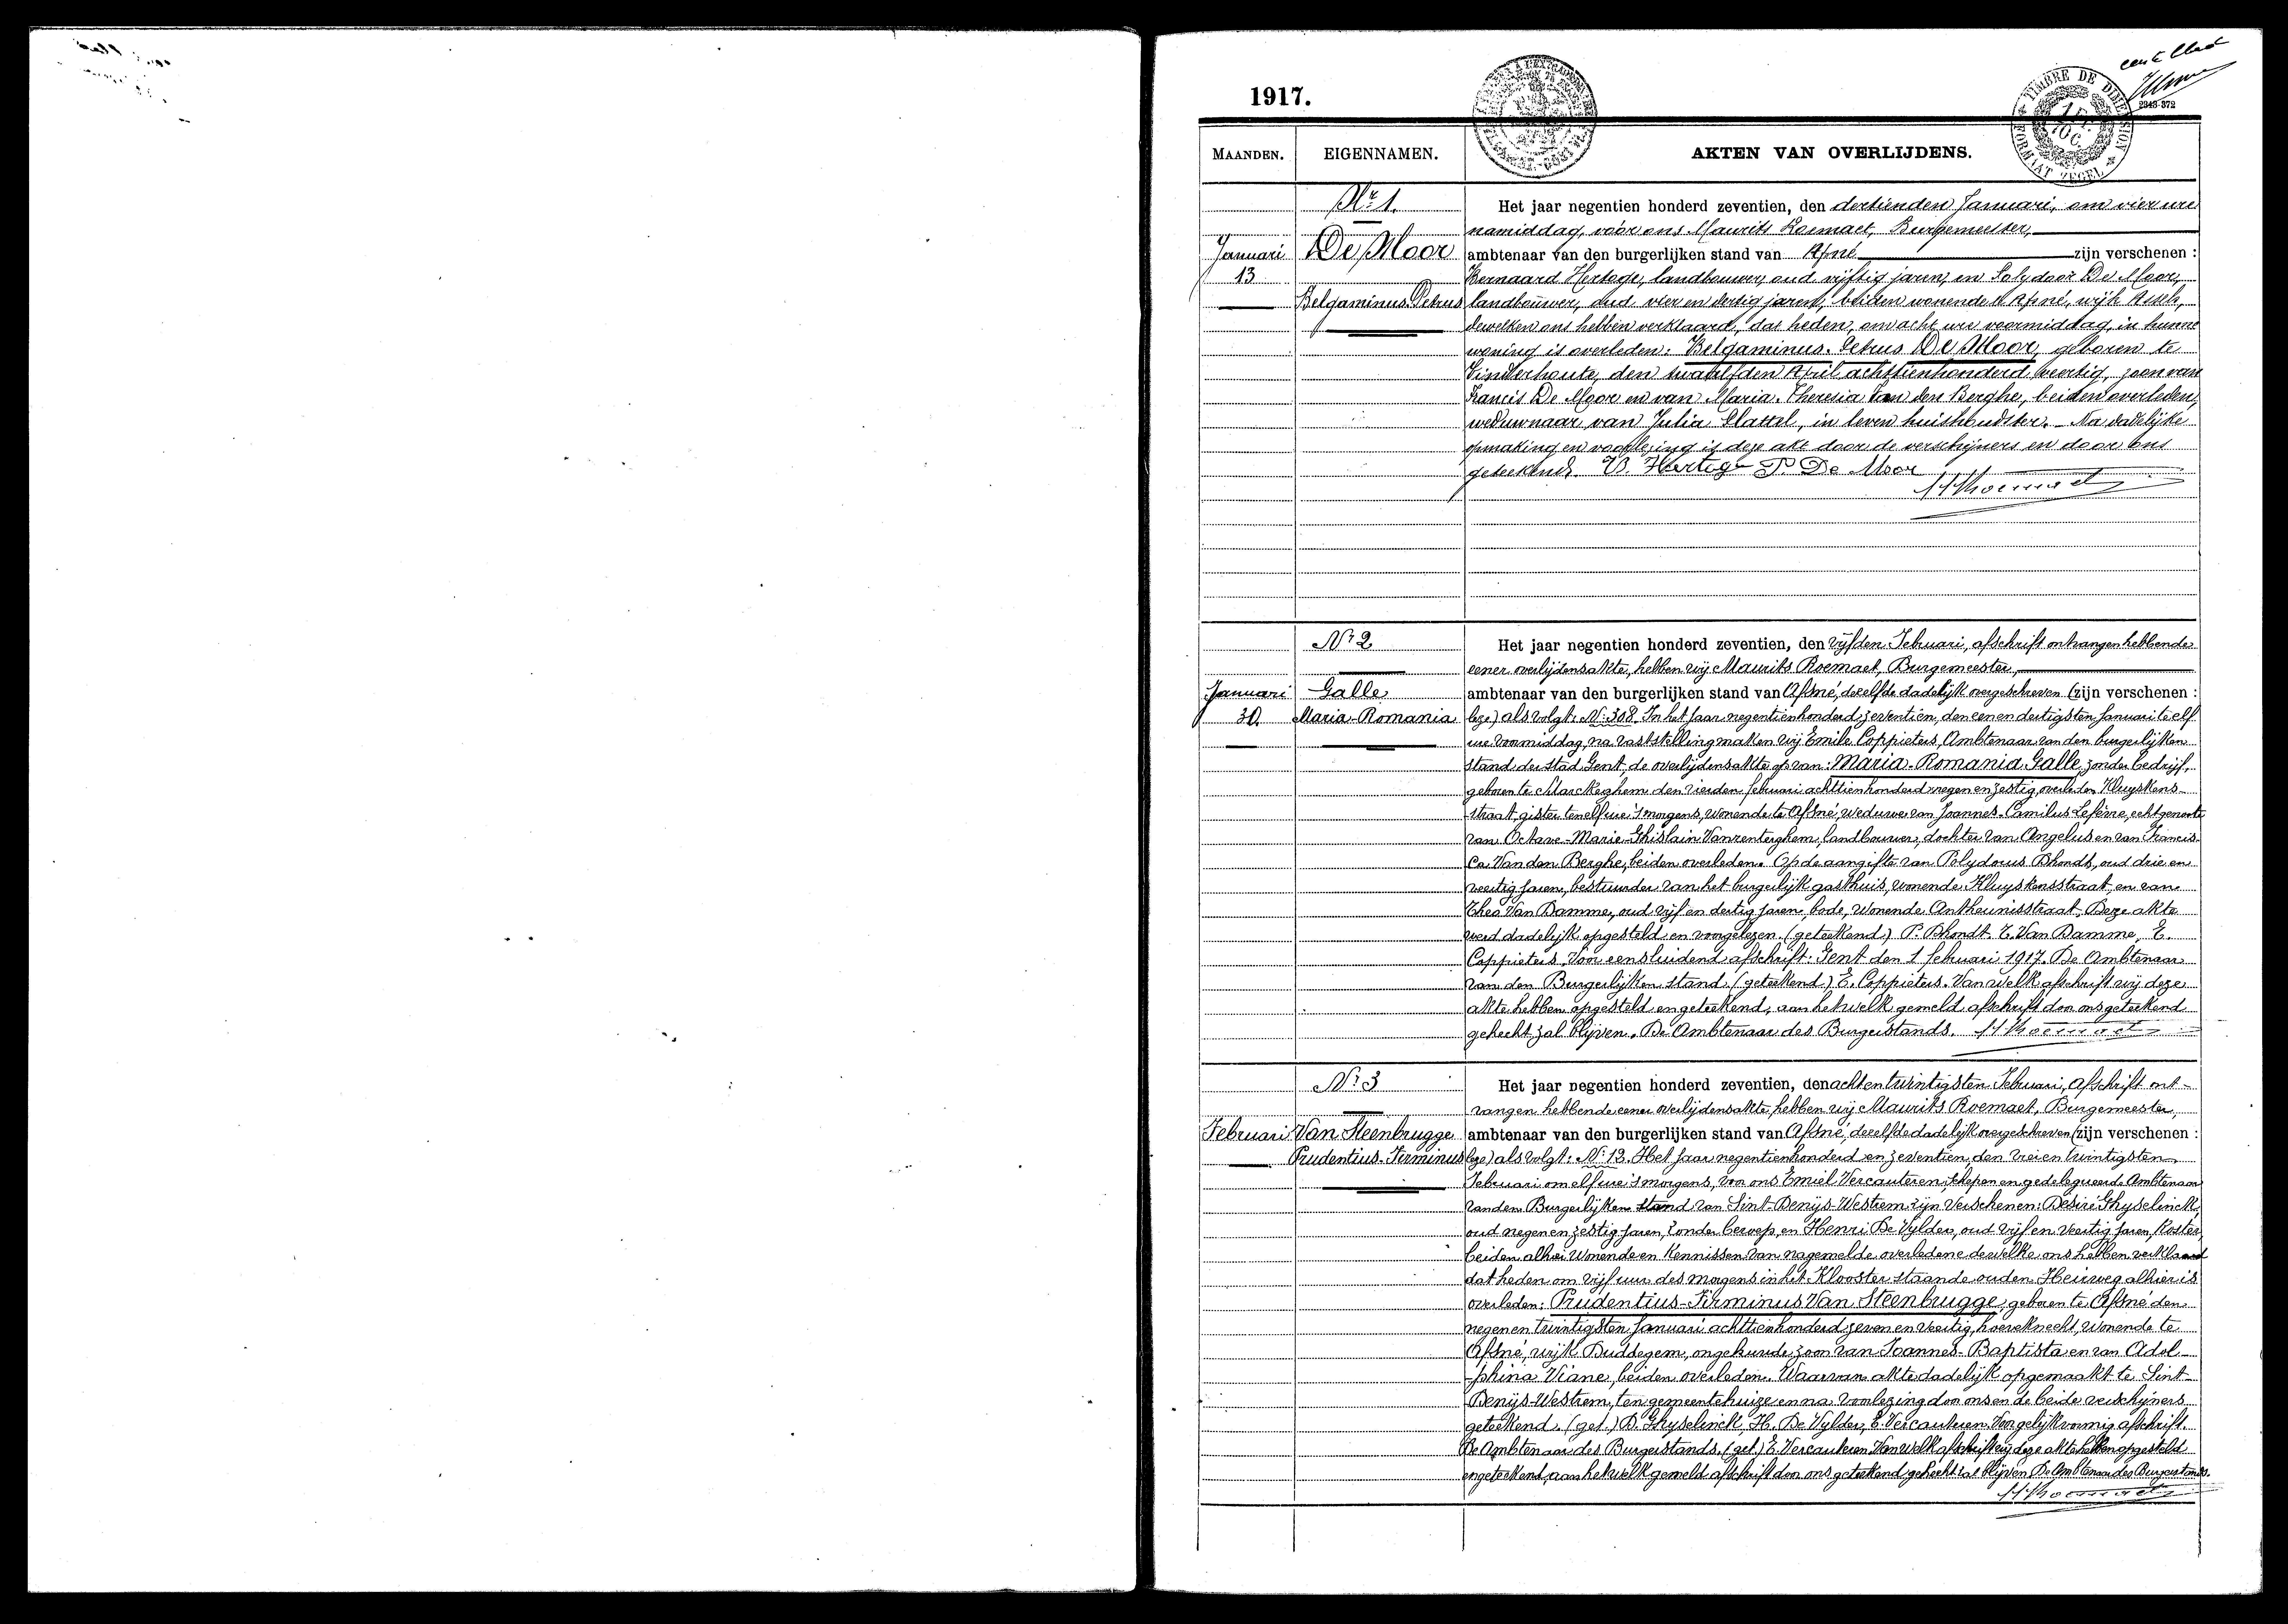 1917.
TIMBRE DE DIMENSION
FORMAAT ZEGEL
2343-372
MAANDEN.
EIGENNAMEN.
AKTEN VAN OVERLIJDENS.
Nr 1.
Januari
13
De Moor
Belgaminus Petrus
Het jaar negentien honderd zeventien, den dertienden Januari, om vier ure
namiddag, vóór ons Maurits Roemaet, Burgemeester,
ambtenaar van den burgerlijken stand van Afsné zijn verschenen :
Bernaard Hertoge, landbouwer, oud vijftig jaren, en Polydoor De Moor,
landbouwer, oud vier en dertig jaren, beiden wonende te Afsné, wijk
dewelken ons hebben verklaard, dat heden, om acht ure voormiddag, in hunne
woning is overleden: Belgaminus-Petrus De Moor, geboren te
Vinderhoute, den twaalfden April achttienhonderd veertig, zoon van
Francis De Moor en van Maria-Theresia Van den Berghe, beiden overleden,
weduwnaar van Julia Slattel, in leven huishoudster. Na dadelijke
opmaking en voorlezing is deze akt door de verschijners en door ons
geteekend. B. Hertoge P. De Moor
M Roemaet
Nr 2
Januari
30.
Galle
Maria-Romania
Het jaar negentien honderd zeventien, den vijfden Februari, afschrift ontvangen hebbende
eener overlijdensakte, hebben wij Maurits Roemaet, Burgemeester,
ambtenaar van den burgerlijken stand van Afsné, dezelfde dadelijk overgeschreven (zijn verschenen :
leze) als volgt: Nr 308. In het jaar negentienhonderd zeventien, den een en dertigsten Januari te elf
ure voormiddag, na vaststelling maken wij Emile Coppieters, Ambtenaar van den burgerlijken
stand der stad Gent, de overlijdensakte op van: Maria-Romania Galle, zonder bedrijf,
geboren te Marckeghem den vierden februari achttienhonderd negen en zestig, overleden Kluyskens-
straat, gister ten elf ure 's morgens, wonende te Afsné, weduwe van Joannes-Camilus Lefèvre, echtgenoote
van Octave-Marie-Ghislain Vanrenterghem, landbouwer, dochter van Angelus en van Francis-
ca Van den Berghe, beiden overleden. Op de aangifte van Polydorus Dhondt, oud drie en
veertig jaren, bestuurder van het burgerlijk gasthuis, wonende Kluyskensstraat, en van
Theo Van Damme, oud vijf en dertig jaren, bode, wonende Antheunisstraat. Deze akte
werd dadelijk opgesteld en voorgelezen. (geteekend) P. Dhondt. T. Van Damme, E.
Coppieters. Voor eensluidend afschrift: Gent den 1 februari 1917. De Ambtenaar
van den Burgerlijken stand. (geteekend) E. Coppieters. Van welk afschrift wij deze
akte hebben opgesteld en geteekend, aan hetwelk gemeld afschrift door ons geteekend
gehecht zal blijven. De Ambtenaar des Burgerstands. M Roemaet
Nr 3
Februari
Van Steenbrugge
Prudentius-Firminus
Het jaar negentien honderd zeventien, den achtentwintigsten Februari, afschrift ont-
vangen hebbende eener overlijdensakte, hebben wij Maurits Roemaet, Burgemeester,
ambtenaar van den burgerlijken stand van Afsné, dezelfde dadelijk overgeschreven (zijn verschenen :
leze) als volgt: Nr 13. Het jaar negentienhonderd en zeventien, den drei en twintigsten
Februari om elf ure 's morgens, voor ons Emiel Vercauteren, Schepen en gedelegueerde Ambtenaar
van den Burgerlijken stand van Sint-Denijs-Westrem zijn verschenen: Desiré Ghyselinck,
oud negen en zestig jaren, zonder beroep, en Henri De Wylder, oud vijf en veertig jaren, koster,
beiden alhier wonende en kennissen van nagemelde overledene dewelke ons hebben verklaard
dat heden om vijf uur des morgens in het Klooster staande ouden Heirweg alhier is
overleden: Prudentius-Firminus Van Steenbrugge, geboren te Afsné den
negenentwintigsten Januari achttienhonderd zeven en veertig, hovenknecht, wonende te
Afsné, wijk Duddegem, ongehuwde zoon van Joannes-Baptista en van Adol-
phina Viane, beiden overleden. Waarvan akte dadelijk opgemaakt te Sint-
Denijs-Westrem, ten gemeentehuize en na voorlezing door ons en de beide verschijners
geteekend. (get.) D. Ghyselinck, H. De Wylder, E. Vercauteren. Voor gelijkvormig afschrift.
De Ambtenaar des Burgerstands. (get.) E. Vercauteren. Van welk afschrift wij deze akte hebben opgesteld
en geteekend, aan hetwelk gemeld afschrift door ons geteekend gehecht zal blijven. De Ambtenaar des Burgerstands.
M Roemaet